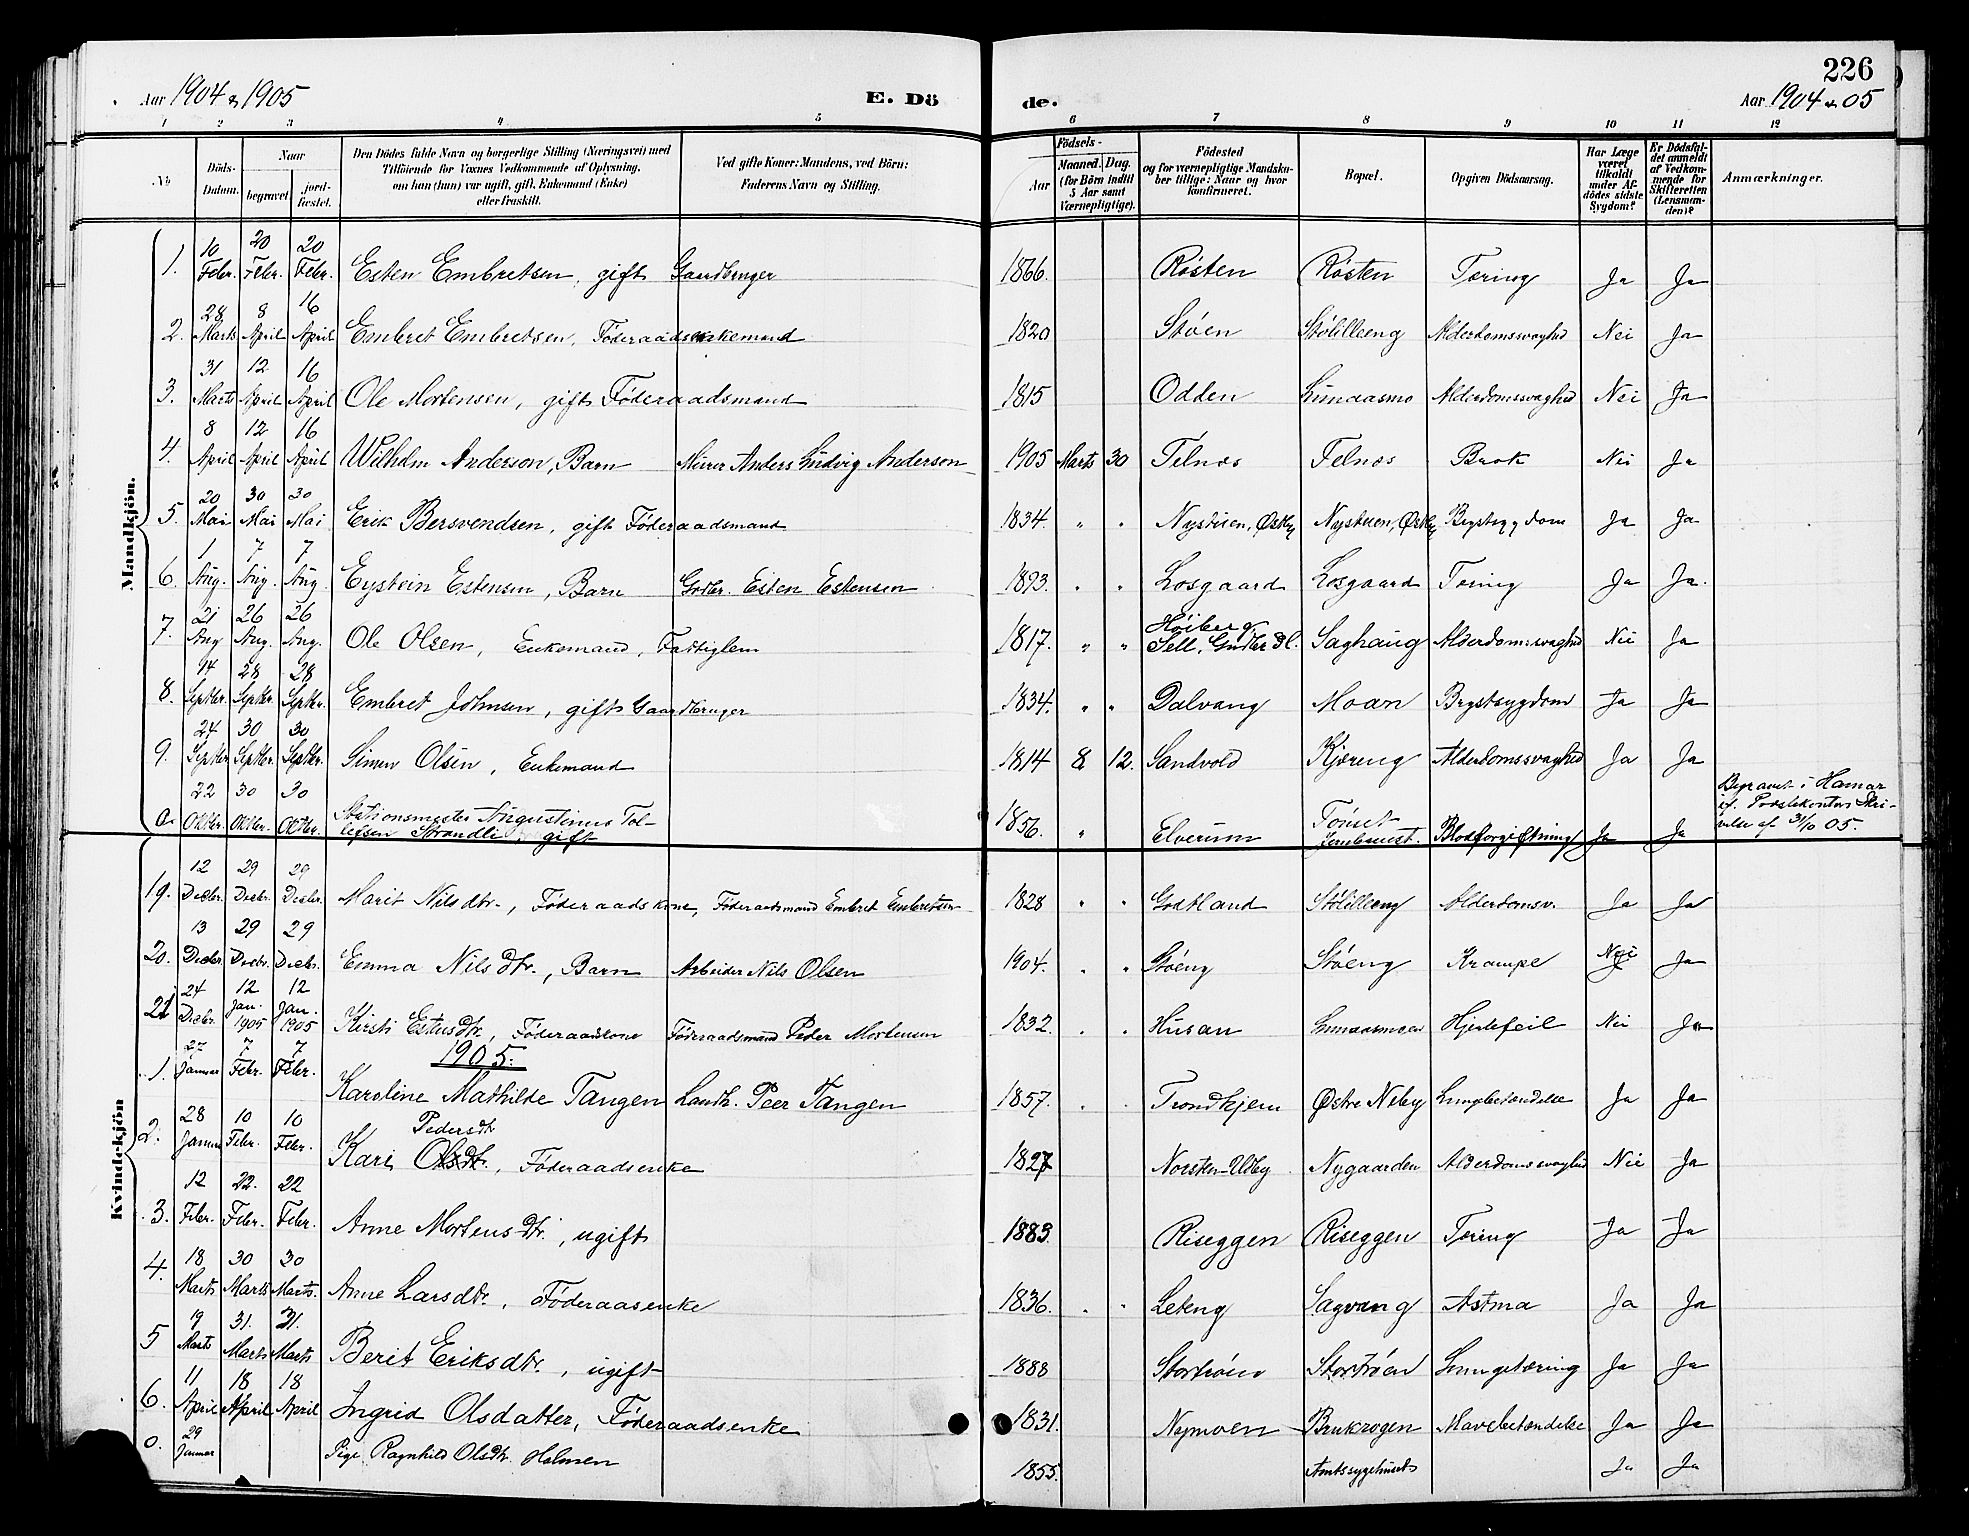 226
Aar 1904 & 1905 E. Dö de. Aar 1904 & 05
1 2 3 4 5 6 7 8 9 10 11 12
No
Döds-Datum.
Naar
begravet.
jord-fæstet.
Den Dödes fulde Navn og borgerlige Stilling (Næringsvei) med
Tilföiende for Voxnes Vedkommende af Oplysning,
om han (hun) var ugift, gift, Enkemand (Enke)
eller fraskilt.
Ved gifte Koner: Mandens, ved Börn:
Faderens Navn og Stilling.
Födsels-
Aar
Maaned. Dag.
(for Börn indtil
5 Aar samt
Værnepligtige).
Födested
og for værnepligtige Mandska-
ber tillige: Naar og hvor
konfirmeret.
Bopæl.
Opgiven Dödsaarsag.
Har Læge
været
tilkaldt
under Af-
dödes sidste
Sygdom?
Er Dödsfal-
det anmeldt
af Vedkom-
mende for
Skifteretten
(Lensman-
den)?
Anmærkninger.
Mandkjön.
1. 10 Febr. 20 Febr. 20 Febr. Esten Embretsen, gift Gaardbruger 1866. Røsten Røsten Tæring Ja Ja
2. 28 Marts 8 April 16 April Embret Embretsen, Føderaadsenkemand 1820 Støen Stølilleeng Alderdomssvaghed Nei Ja
3. 31 Marts 12 April 16 April Ole Mortensen, gift Føderaadsmand 1815 Odden Lunaasmo Alderdomssvaghed Nei Ja
4. 8 April 12 April 16 April Wilhelm Anderson, Barn Murer Anders Ludvig Anderson 1905 Marts 30 Telnæs Telnæs Brok Nei Ja
5. 20 Mai 30 Mai 30 Mai Erik Bersvendsen, gift Føderaadsmand 1834. " " Nystuen, Østby Nystuen, Østby Brystsygdom Ja Ja
6. 1 Aug. 7 Aug. 7 Aug. Eystein Estensen, Barn Grdbr. Esten Estensen 1893. " " Losgaard Losgaard Tæring Ja Ja.
7. 21 Aug 26 Aug. 26 Aug. Ole Olsen, Enkemand, Fattiglem 1817. " " Høiberg Sell, Gudbr.dl. Saghaug Alderdomssvaghed Nei Ja
8. 14 Septbr. 28 Septbr. 28 Septbr. Embret Johnsen, gift Gaardbruger 1834. " " Dalvang Moan Brystsygdom Ja Ja
9. 24 Septbr. 30 Septbr. 30 Septbr. Simen Olsen, Enkemand 1814 8 12. Sandvold Kjæreng Alderdomssvaghed Ja Ja
a. 22 Oktbr. 30 Oktbr. 30 Oktbr. Stationsmester Augustinus Tol-
lefsen Strandli, gift 1856. " Elverum Tønset Jernbanest. Blodforgiftning Ja Ja Begravet i Hamar
if. Prestekontors Skri-
velse af 31/10 05.
Kvindekjön
19. 12 Decbr. 29 Decbr. 29 Decbr. Marit Nilsdtr., Føderaadskone, Føderaadsmand Embret Embretsen 1828 " " Godtland Stølilleeng Alderdomsv. Ja Ja
20. 13 Decbr. 29 Decbr. 29 Decbr. Emma Nilsdtr., Barn Arbeider Nils Olsen 1904. " " Støeng Støeng Krampe Nei Ja
21 24 Decbr. 12 Jan. 1905 12 Jan. 1905 Kirsti Estensdtr, Føderaadskone Føderaadsmand Peder Mortensen 1832. " " Husan Lunaasmoen Hjertefeil Nei Ja
1905.
1. 27 Januar 7 Febr. 7 Febr. Karoline Mathilde Tangen Landh. Peer Tangen 1857. Trondhjem Østre Neby Lungebetændelse Ja Ja
2. 28 Januar 10 Febr. 10 Febr. Kari Pedersdtr Olsdtr., Føderaadsenke 1827 Norsten-Udby Nygaarden Alderdomssvaghed Nei Ja
3. 12 Febr. 22. Febr. 22 Febr. Anne Mortensdtr., ugift 1883 Riseggen Riseggen Tæring Ja Ja
4. 18 Marts 30 Marts 30 Marts. Anne Larsdtr., Føderaasenke 1836. " " Leteng Sagvang Astma Ja Ja
5 9 Marts 31. Marts 31. Marts Berit Eriksdtr., ugift 1888 Stortrøen Stortrøen Lungetæring Ja Ja
6. 11 April 18 April 18 April Ingrid Olsdatter, Føderaadsenke 1831. Nymoen Brukrogen Mavebetændelse Ja Ja
o. 29 Januar Pige Ragnhild Olsdtr. Holmen 1855. Amtssygehuset Ja Ja